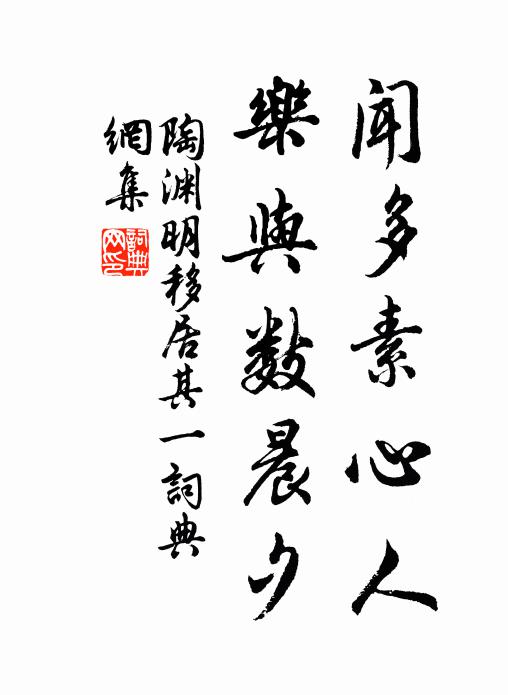 聞多素心人
樂與數晨夕
陶渊明移居其一詞典
網集
詞典
网印